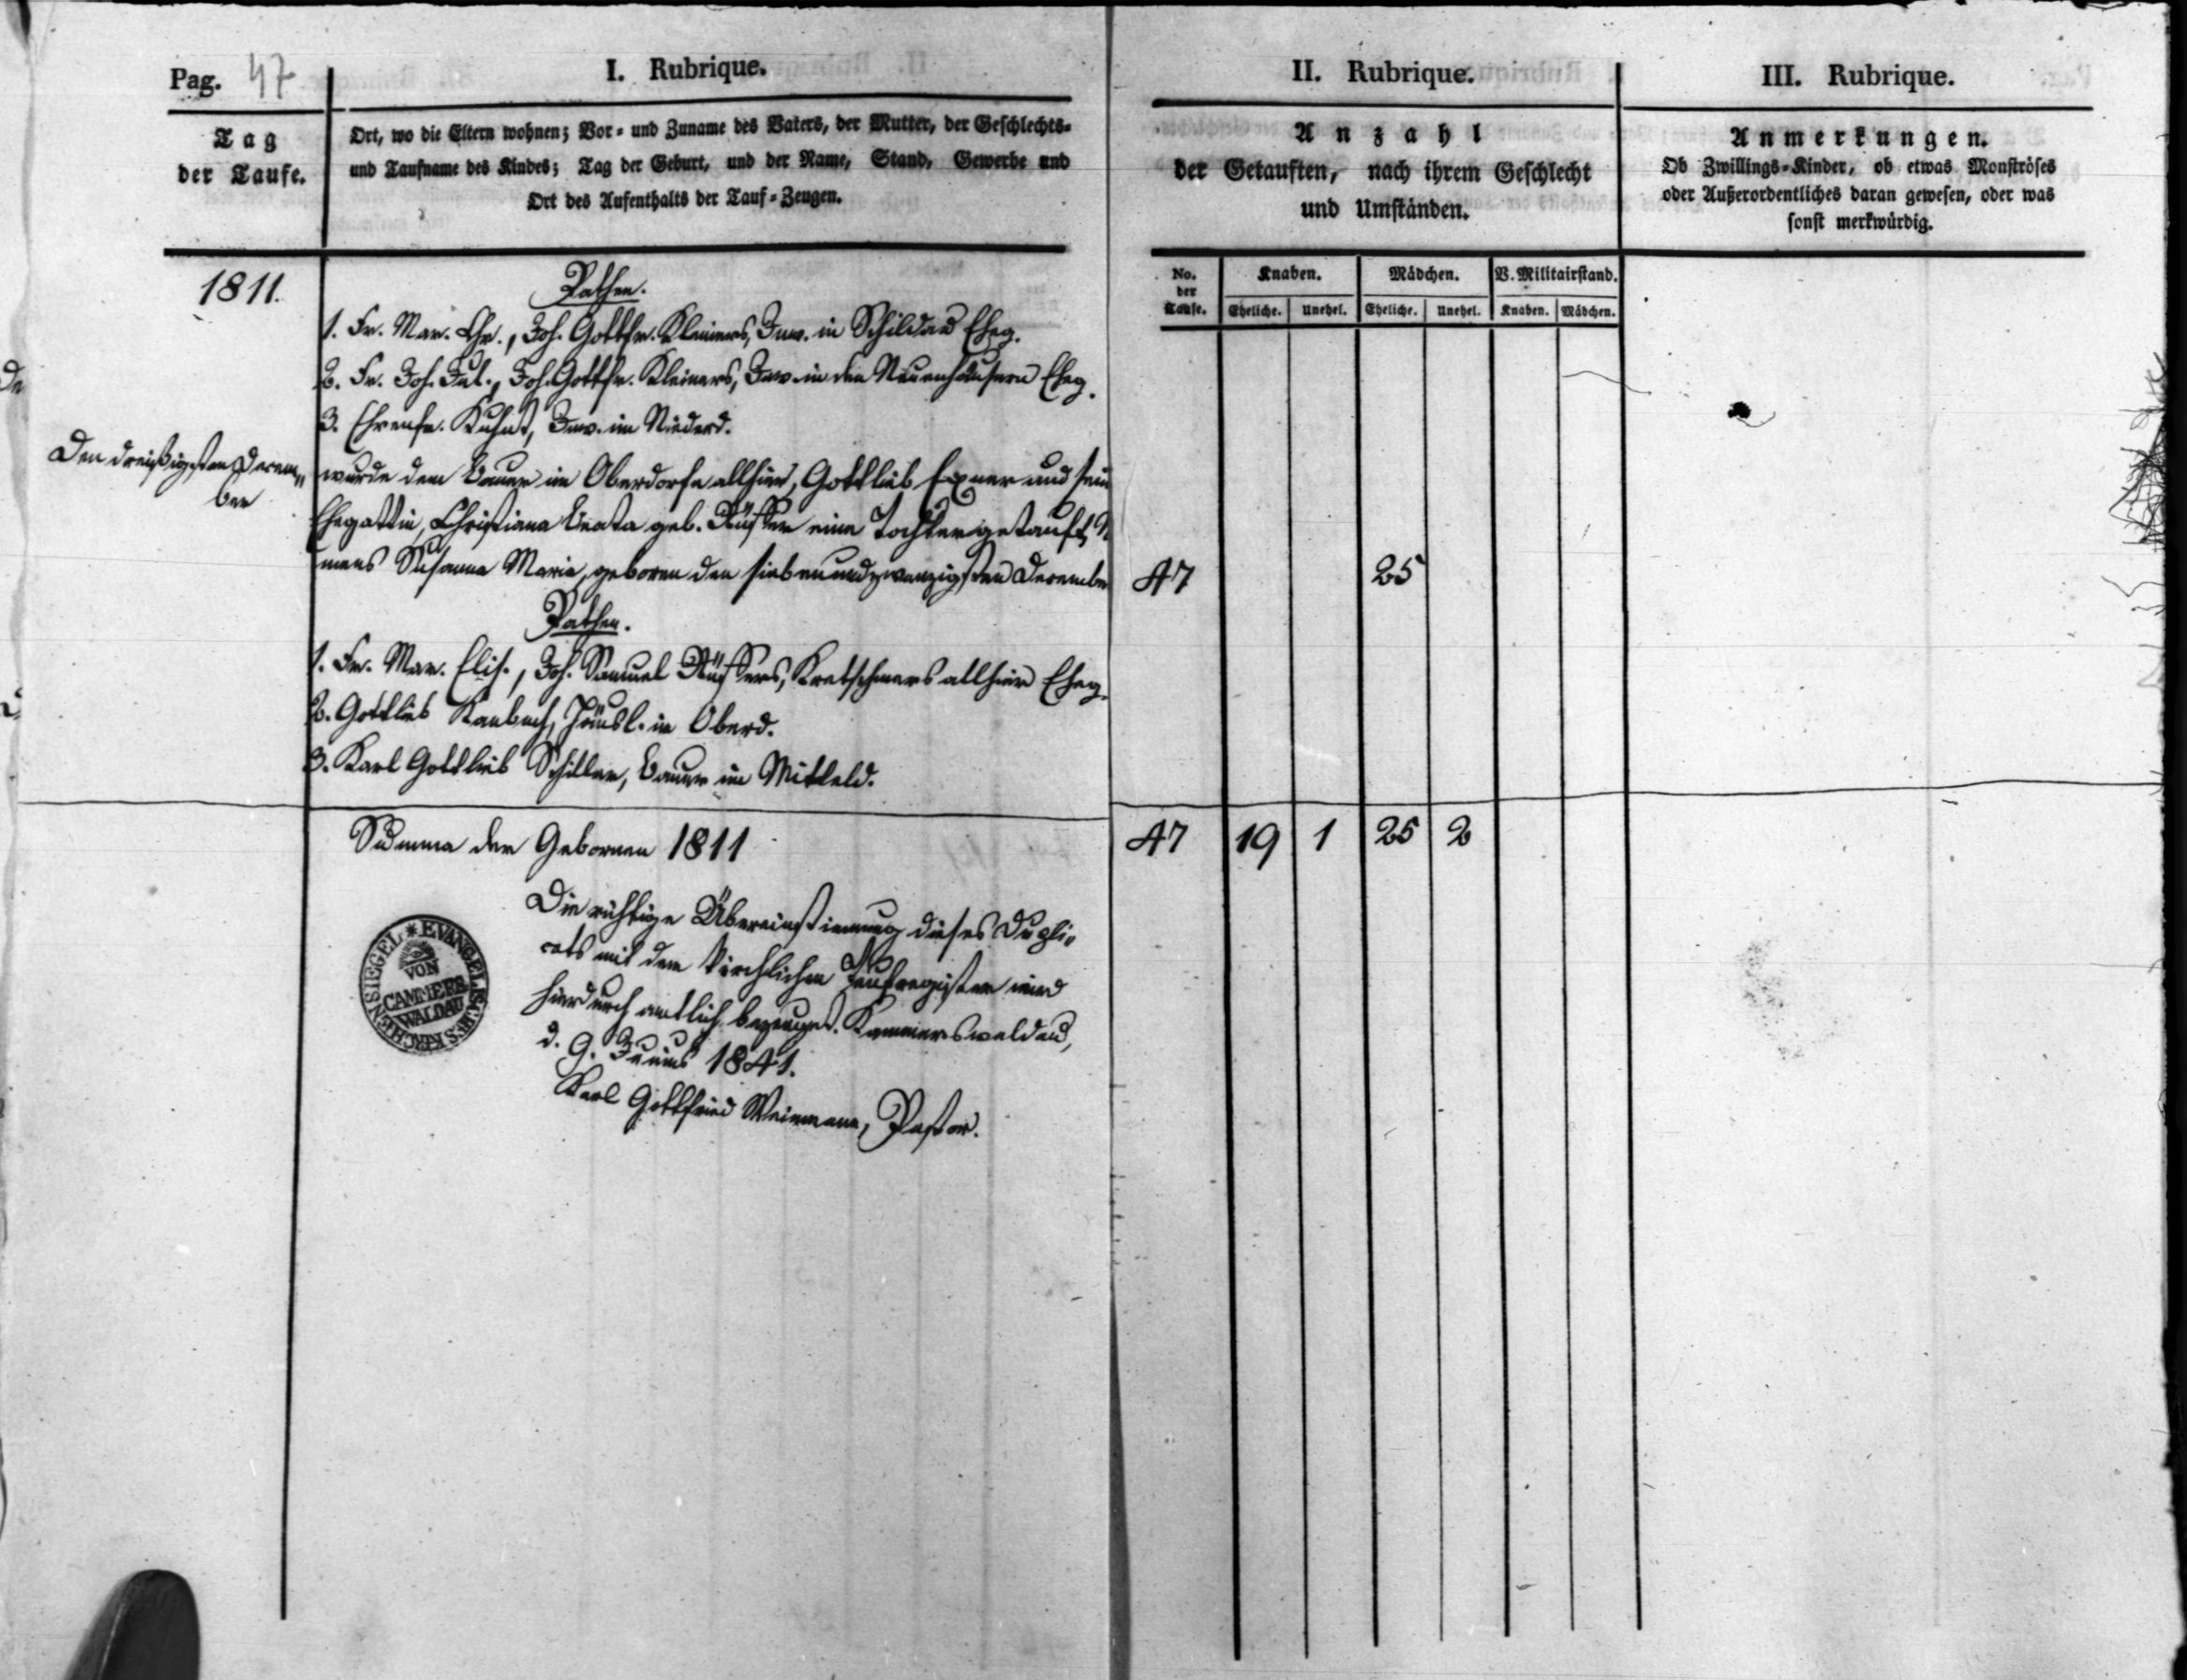 Pag. 47
I. Rubrique.
Tag
der Taufe.
Ort, wo die Eltern wohnen; Vor- und Zuname des Vaters, der Mutter, der Geschlechts-
und Taufname des Kindes; Tag der Geburt, und der Name, Stand, Gewerbe und
Ort des Aufenthalts der Tauf-Zeugen.
1811.
Pathen.
1. Fr. Mar. Chr., Joh. Gottfr. Kleiners, Inw. in Schildau Eheg.
2. Fr. Joh. Jul., Joh. Gottfr. Kleiners, Inw. in den Neuenhäusern Eheg.
3. Ehrenfr. Kuhnt, Inw. im Niederd.
Den dreißigsten Decem-
ber
wurde dem Bauer im Oberdorfe allhier, Gottlieb Exner und sein
Ehegattin, Christiana Beata geb. Rüffer eine Tochter getauft, N
mens Susanna Maria, geboren den siebenundzwanzigsten Decembe
Pathen.
1. Fr. Mar. Elis., Joh. Samuel Rüffers, Kretschmers allhier Eheg.
2. Gottlieb Raubach, Häusl. in Oberd.
3. Karl Gottlieb Schiller, Bauer im Mitteld.
Summa der Gebornen 1811
Die richtige Übereinstimmung dieses Dupli-
cats mit dem kirchlichen Taufregister wird
hierdurch amtlich bezeuget. Kammerswaldau,
d. 9. Junius 1841.
Karl Gottfried Weinmann, Pastor.
EVANGELISCHES KIRCHENSIEGEL
VON
CAMMERS
WALDAU
II. Rubrique.
Anzahl
der Getauften, nach ihrem Geschlecht
und Umständen.
No.
der
Taufe.
Knaben.
Mädchen.
V. Militairstand.
Eheliche. Unehel. Eheliche. Unehel. Knaben. Mädchen.
47 25
47 19 1 25 2
III. Rubrique.
Anmerkungen.
Ob Zwillings-Kinder, ob etwas Monströses
oder Außerordentliches daran gewesen, oder was
sonst merkwürdig.